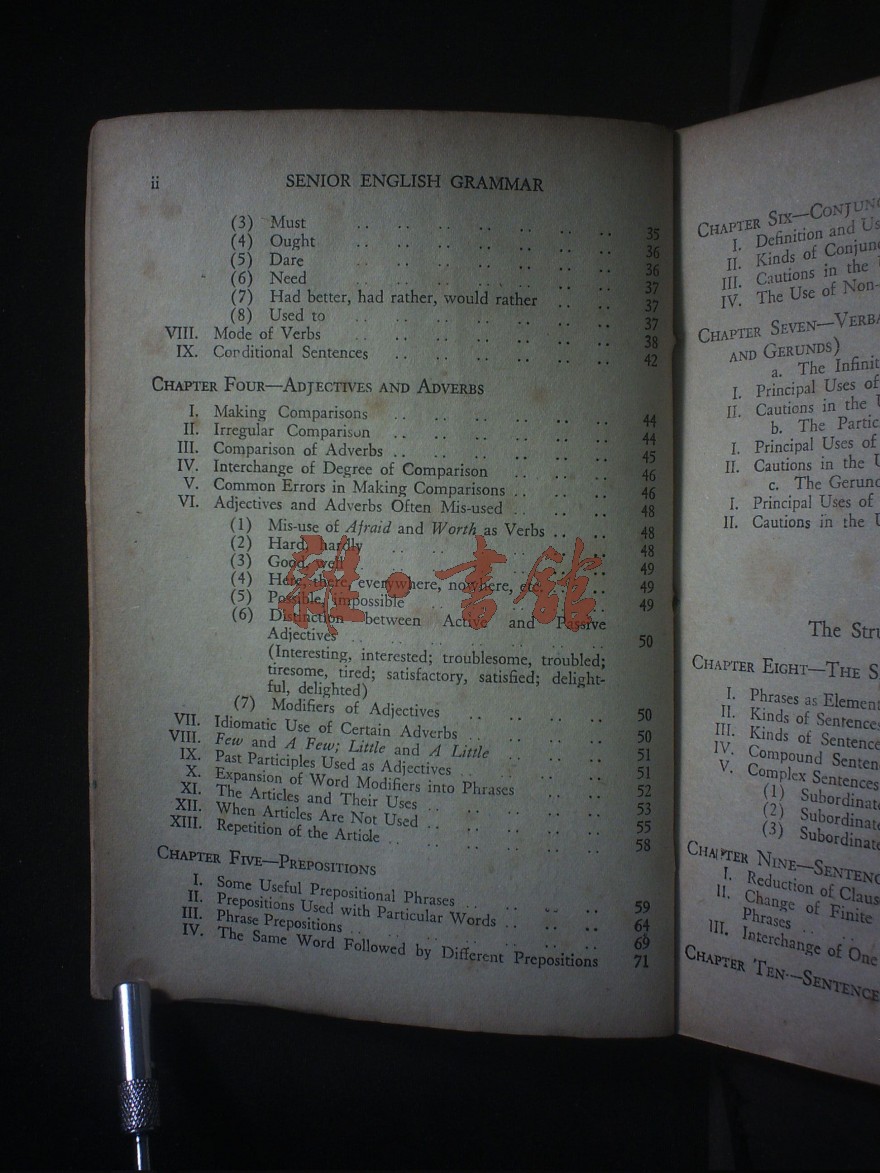 ii SENIOR ENGLISH GRAMMAR
(3) Must .. .. .. .. .. .. .. 35
(4) Ought .. .. .. .. .. .. .. 36
(5) Dare .. .. .. .. .. .. 36
(6) Need .. .. .. .. .. .. .. 37
(7) Had better, had rather, would rather .. .. 37
(8) Used to .. .. .. .. .. .. .. 37
VIII. Mode of Verbs .. .. .. .. .. .. .. 38
IX. Conditional Sentences .. .. .. .. .. .. 42
CHAPTER FOUR—ADJECTIVES AND ADVERBS
I. Making Comparisons .. .. .. .. .. .. 44
II. Irregular Comparison .. .. .. .. .. .. 44
III. Comparison of Adverbs .. .. .. .. .. .. 45
IV. Interchange of Degree of Comparison .. .. .. 46
V. Common Errors in Making Comparisons .. .. .. 46
VI. Adjectives and Adverbs Often Mis-used .. .. .. 48
(1) Mis-use of Afraid and Worth as Verbs .. .. 48
(2) Hard, hardly .. .. .. .. .. .. 48
(3) Good, well .. .. .. .. .. .. 49
(4) Here, there, everywhere, nowhere, etc. .. .. 49
(5) Possible, impossible .. .. .. .. .. 49
(6) Distinction between Active and Passive
Adjectives .. .. .. .. .. .. 50
(Interesting, interested; troublesome, troubled;
tiresome, tired; satisfactory, satisfied; delight-
ful, delighted)
(7) Modifiers of Adjectives .. .. .. .. 50
VII. Idiomatic Use of Certain Adverbs .. .. .. .. 50
VIII. Few and A Few; Little and A Little .. .. .. 51
IX. Past Participles Used as Adjectives .. .. .. .. 51
X. Expansion of Word Modifiers into Phrases .. .. 52
XI. The Articles and Their Uses .. .. .. .. .. 53
XII. When Articles Are Not Used .. .. .. .. .. 55
XIII. Repetition of the Article .. .. .. .. .. .. 58
CHAPTER FIVE—PREPOSITIONS
I. Some Useful Prepositional Phrases .. .. .. .. 59
II. Prepositions Used with Particular Words .. .. .. 64
III. Phrase Prepositions .. .. .. .. .. .. .. 69
IV. The Same Word Followed by Different Prepositions 71
CHAPTER SIX—CONJUNC
I. Definition and Us
II. Kinds of Conjunc
III. Cautions in the
IV. The Use of Non-
CHAPTER SEVEN—VERBA
AND GERUNDS)
a. The Infinit
I. Principal Uses of
II. Cautions in the U
b. The Partic
I. Principal Uses of
II. Cautions in the U
c. The Gerund
I. Principal Uses of
II. Cautions in the U
The Stru
CHAPTER EIGHT—THE S
I. Phrases as Element
II. Kinds of Sentences
III. Kinds of Sentence
IV. Compound Senten
V. Complex Sentences
(1) Subordinate
(2) Subordinate
(3) Subordinate
CHAPTER NINE—SENTENC
I. Reduction of Claus
II. Change of Finite
Phrases .. ..
III. Interchange of One
CHAPTER TEN—SENTENCE
雜·書館